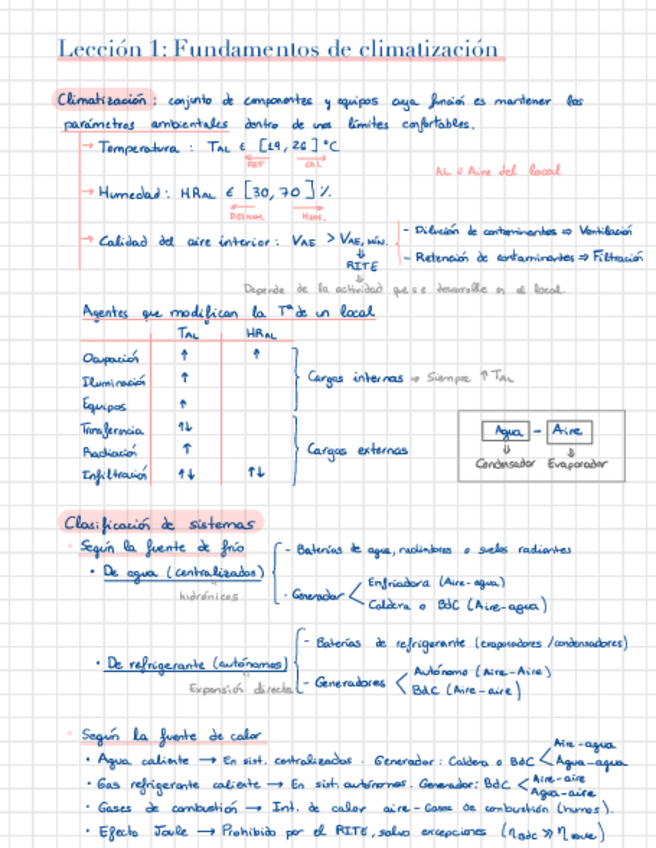 Lección 1: Fundamentos de climatización
Climatización: conjunto de componentes y equipos cuya función es mantener los
parámetros ambientales dentro de unos límites confortables.
→ Temperatura : TAL ∈ [19, 26] °C
REF CAL
AL ≡ Aire del local
→ Humedad : HRAL ∈ [30, 70] %
DESHUM. HUM.
→ Calidad del aire interior : VAE > VAE, MÍN.
- Dilución de contaminantes ⇒ Ventilación
- Retención de contaminantes ⇒ Filtración
RITE
Depende de la actividad que se desarrolle en el local.
Agentes que modifican la Tª de un local
TAL HRAL
Ocupación ↑ ↑
Iluminación ↑
Equipos ↑
Cargas internas ⇒ Siempre ↑ TAL
Transferencia ↑↓
Radiación ↑
Infiltración ↑↓ ↑↓
Cargas externas
Agua - Aire
Condensador Evaporador
Clasificación de sistemas
Según la fuente de frío
• De agua (centralizados)
hidrónicos
- Baterías de agua, radiadores o suelos radiantes
- Generador
Enfriadora (Aire-agua)
Caldera o BdC (Aire-agua)
• De refrigerante (autónomos)
Expansión directa
- Baterías de refrigerante (evaporadores / condensadores)
- Generadores
Autónomo (Aire-Aire)
BdC (Aire-aire)
Según la fuente de calor
• Agua caliente → En sist. centralizados. Generador: Caldera o BdC < Aire-agua
Agua-agua
• Gas refrigerante caliente → En sist. autónomos. Generador: BdC < Aire-aire
Agua-aire
• Gases de combustión → Int. de calor aire-Gases de combustión (humos).
• Efecto Joule → Prohibido por el RITE, salvo excepciones (ηBdC >> ηJoule)